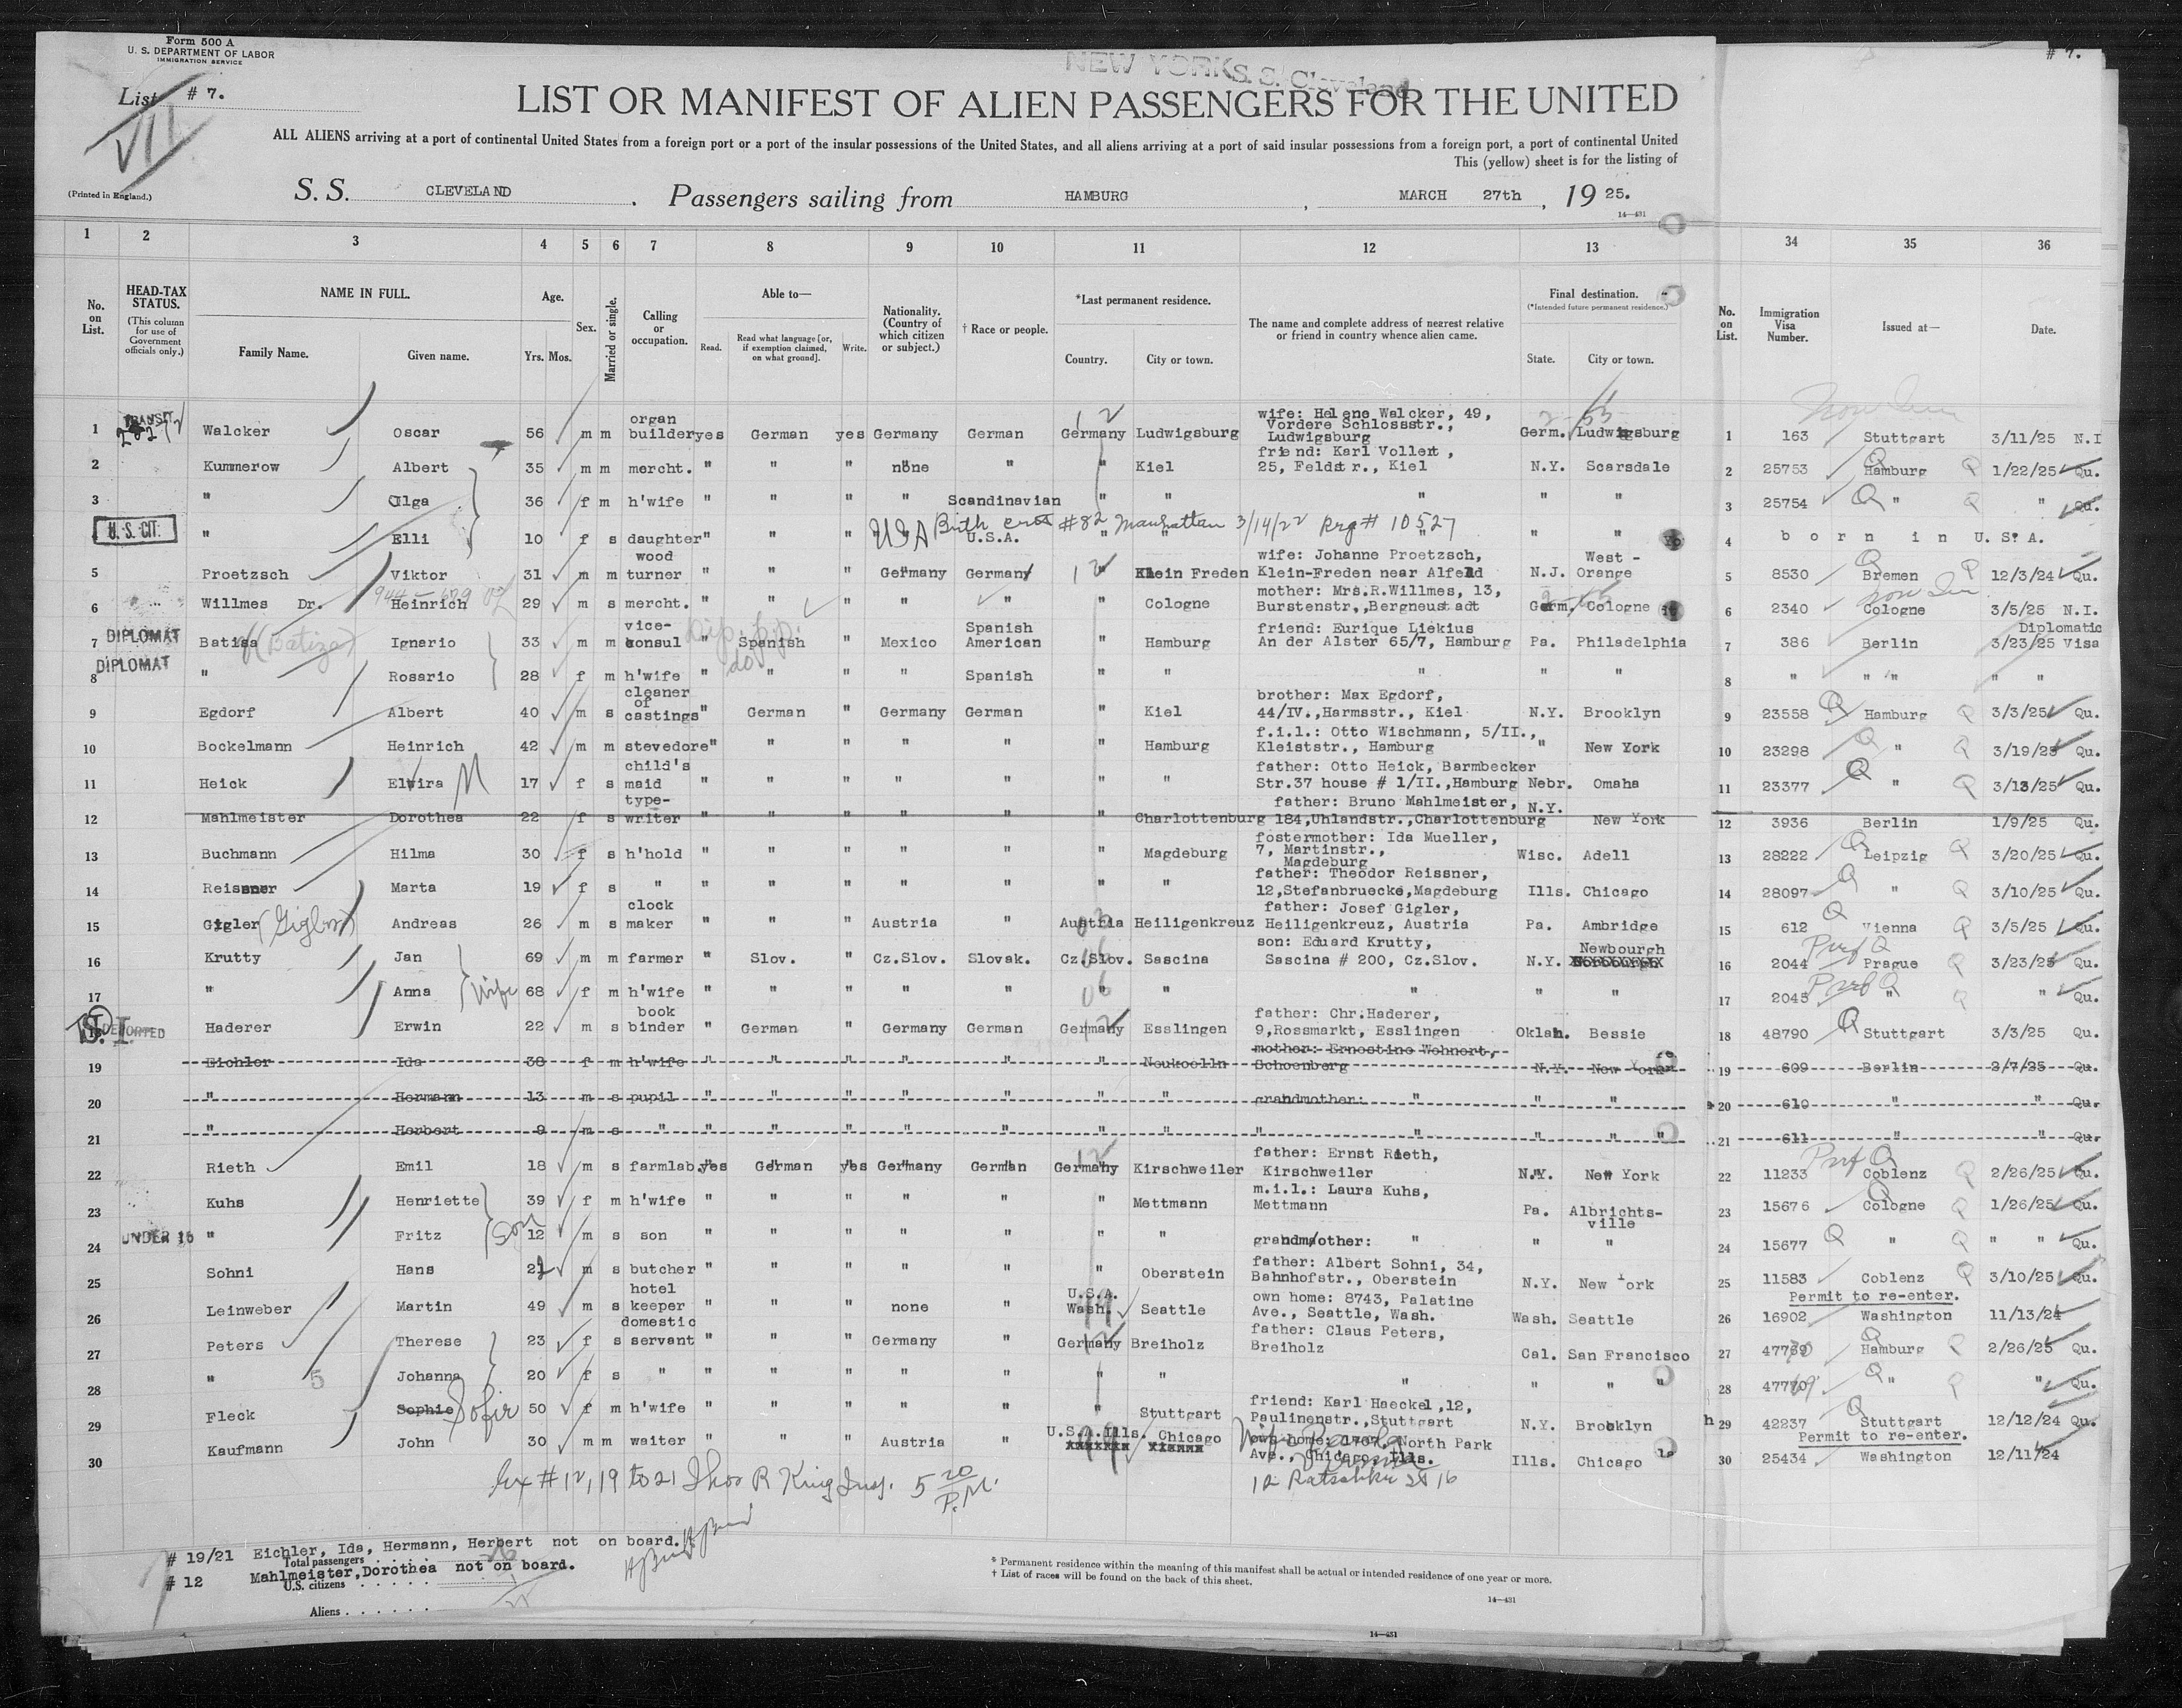 Form 500 A
U. S. DEPARTMENT OF LABOR
IMMIGRATION SERVICE
NEW YORK S. S. Cleveland
# 7.
List # 7.
VII
LIST OR MANIFEST OF ALIEN PASSENGERS FOR THE UNITED
ALL ALIENS arriving at a port of continental United States from a foreign port or a port of the insular possessions of the United States, and all aliens arriving at a port of said insular possessions from a foreign port, a port of continental United
This (yellow) sheet is for the listing of
(Printed in England.)
S. S. CLEVELAND . Passengers sailing from HAMBURG , MARCH 27th , 19 25.
14—431
1 2 3 4 5 6 7 8 9 10 11 12 13 34 35 36
No. on List.
HEAD-TAX STATUS.
(This column for use of Government officials only.)
NAME IN FULL.
Family Name. Given name.
Age.
Yrs. Mos.
Sex.
Married or single.
Calling or occupation.
Able to—
Read. Read what language [or, if exemption claimed, on what ground]. Write.
Nationality. (Country of which citizen or subject.)
† Race or people.
*Last permanent residence.
Country. City or town.
The name and complete address of nearest relative or friend in country whence alien came.
Final destination.
(*Intended future permanent residence.)
State. City or town.
No. on List.
Immigration Visa Number.
Issued at—
Date.
1 TRANSIT Walcker Oscar 56 m m organ builder yes German yes Germany German Germany Ludwigsburg wife: Helene Walcker, 49, Vordere Schlossstr., Ludwigsburg Germ. Ludwigsburg 1 163 Stuttgart 3/11/25 N.I
2 Kummerow Albert 35 m m mercht. " " " none " " Kiel friend: Karl Vollert, 25, Feldstr., Kiel N.Y. Scarsdale 2 25753 Hamburg 1/22/25 Qu.
3 " Olga 36 f m h'wife " " " " Scandinavian " " " " " 3 25754 " " Qu.
U. S. CIT. " Elli 10 f s daughter " " " USA U.S.A. " " " " " 4 b o r n i n U. S. A.
Birth cert #82 Manhattan 3/14/22 Reg # 10527
5 Proetzsch Viktor 31 m m wood turner " " " Germany Germany " Klein Freden wife: Johanne Proetzsch, Klein-Freden near Alfeld N.J. West - Orange 5 8530 Bremen 12/3/24 Qu.
6 Willmes Dr. Heinrich 29 m s mercht. " " " " " " Cologne mother: Mrs.R.Willmes, 13, Burstenstr.,Bergneustadt Germ. Cologne 6 2340 Cologne 3/5/25 N.I.
7 DIPLOMAT Batisa (Batiza) Ignario 33 m m vice-konsul " Spanish " Mexico Spanish American " Hamburg friend: Eurique Liekius An der Alster 65/7, Hamburg Pa. Philadelphia 7 386 Berlin 3/23/25 Diplomatic Visa
8 DIPLOMAT " Rosario 28 f m h'wife " " " " Spanish " " " " " 8 " " " " "
9 Egdorf Albert 40 m s cleaner of castings " German " Germany German " Kiel brother: Max Egdorf, 44/IV.,Harmsstr., Kiel N.Y. Brooklyn 9 23558 Hamburg 3/3/25 Qu.
10 Bockelmann Heinrich 42 m m stevedore " " " " " " Hamburg f.i.l.: Otto Wischmann, 5/II., Kleiststr., Hamburg " New York 10 23298 " 3/19/25 Qu.
11 Heick Elvira 17 f s child's maid " " " " " " " father: Otto Heick, Barmbecker Str.37 house # 1/II.,Hamburg Nebr. Omaha 11 23377 " 3/13/25 Qu.
12 Mahlmeister Dorothea 22 f s type-writer " " " " " " Charlottenburg father: Bruno Mahlmeister, 184,Uhlandstr.,Charlottenburg N.Y. New York 12 3936 Berlin 1/9/25 Qu.
13 Buchmann Hilma 30 f s h'hold " " " " " " Magdeburg fostermother: Ida Mueller, 7, Martinstr., Magdeburg Wisc. Adell 13 28222 Leipzig 3/20/25 Qu.
14 Reissner Marta 19 f s " " " " " " " " father: Theodor Reissner, 12,Stefanbruecke,Magdeburg Ills. Chicago 14 28097 " 3/10/25 Qu.
15 Gigler Andreas 26 m s clock maker " " " Austria " Austria Heiligenkreuz father: Josef Gigler, Heiligenkreuz, Austria Pa. Ambridge 15 612 Vienna 3/5/25 Qu.
16 Krutty Jan 69 m m farmer " Slov. " Cz.Slov. Slovak. Cz.Slov. Sascina son: Eduard Krutty, Sascina # 200, Cz.Slov. N.Y. Newbourgh 16 2044 Prague 3/23/25 Qu.
17 " Anna wife 68 f m h'wife " " " " " " " " " " 17 2045 " " Qu.
S. I. DEPORTED Haderer Erwin 22 m s book binder " German " Germany German Germany Esslingen father: Chr.Haderer, 9,Rossmarkt, Esslingen Oklah. Bessie 18 48790 Stuttgart 3/3/25 Qu.
19 Eichler Ida 38 f m h'wife " " " " " " Neukoelln mother: Ernestine Wehnert, Schoenberg N.Y. New York 19 609 Berlin 2/7/25 Qu.
20 " Hermann 13 m s pupil " " " " " " " grandmother: " " " 20 610 " " Qu.
21 " Herbert 9 m s " " " " " " " " " " " " " 21 611 " " Qu.
22 Rieth Emil 18 m s farmlab. yes German yes Germany German Germany Kirschweiler father: Ernst Rieth, Kirschweiler N.Y. New York 22 11233 Coblenz 2/26/25 Qu.
23 Kuhs Henriette 39 f m h'wife " " " " " " Mettmann m.i.l.: Laura Kuhs, Mettmann Pa. Albrichts-ville 23 15676 Cologne 1/26/25 Qu.
24 UNDER 16 " Fritz Son 12 m s son " " " " " " " grandmother: " " " 24 15677 " " " Qu.
25 Sohni Hans 21 m s butcher " " " " " " Oberstein father: Albert Sohni, 34, Bahnhofstr., Oberstein N.Y. New York 25 11583 Coblenz 3/10/25 Qu.
26 Leinweber Martin 49 m s hotel keeper " " " none " U.S.A. Wash. Seattle own home: 8743, Palatine Ave., Seattle, Wash. Wash. Seattle 26 Permit to re-enter. 16902 Washington 11/13/24
27 Peters Therese 23 f s domestic servant " " " Germany " Germany Breiholz father: Claus Peters, Breiholz Cal. San Francisco 27 47769 Hamburg 2/26/25 Qu.
28 " Johanna 20 f s " " " " " " " " " " " " 28 47770 " " Qu.
29 Fleck Sophie Sofie 50 f m h'wife " " " " " " Stuttgart friend: Karl Haeckel,12, Paulinenstr.,Stuttgart N.Y. Brooklyn 29 42237 Stuttgart 12/12/24 Qu.
30 Kaufmann John 30 m m waiter " " " Austria " U.S.A.Ills. Chicago own home: 1707, North Park Ave., Chicago, Ills. Ills. Chicago 30 Permit to re-enter. 25434 Washington 12/11/24
Ex # 12, 19 to 21 Thos R King Insp. 5 20 P.M.
# 19/21 Eichler, Ida, Hermann, Herbert not on board.
Total passengers . . . . .
# 12 Mahlmeister,Dorothea not on board.
U.S. citizens . . . . .
Aliens . . . . . .
* Permanent residence within the meaning of this manifest shall be actual or intended residence of one year or more.
† List of races will be found on the back of this sheet.
14—431
14—431